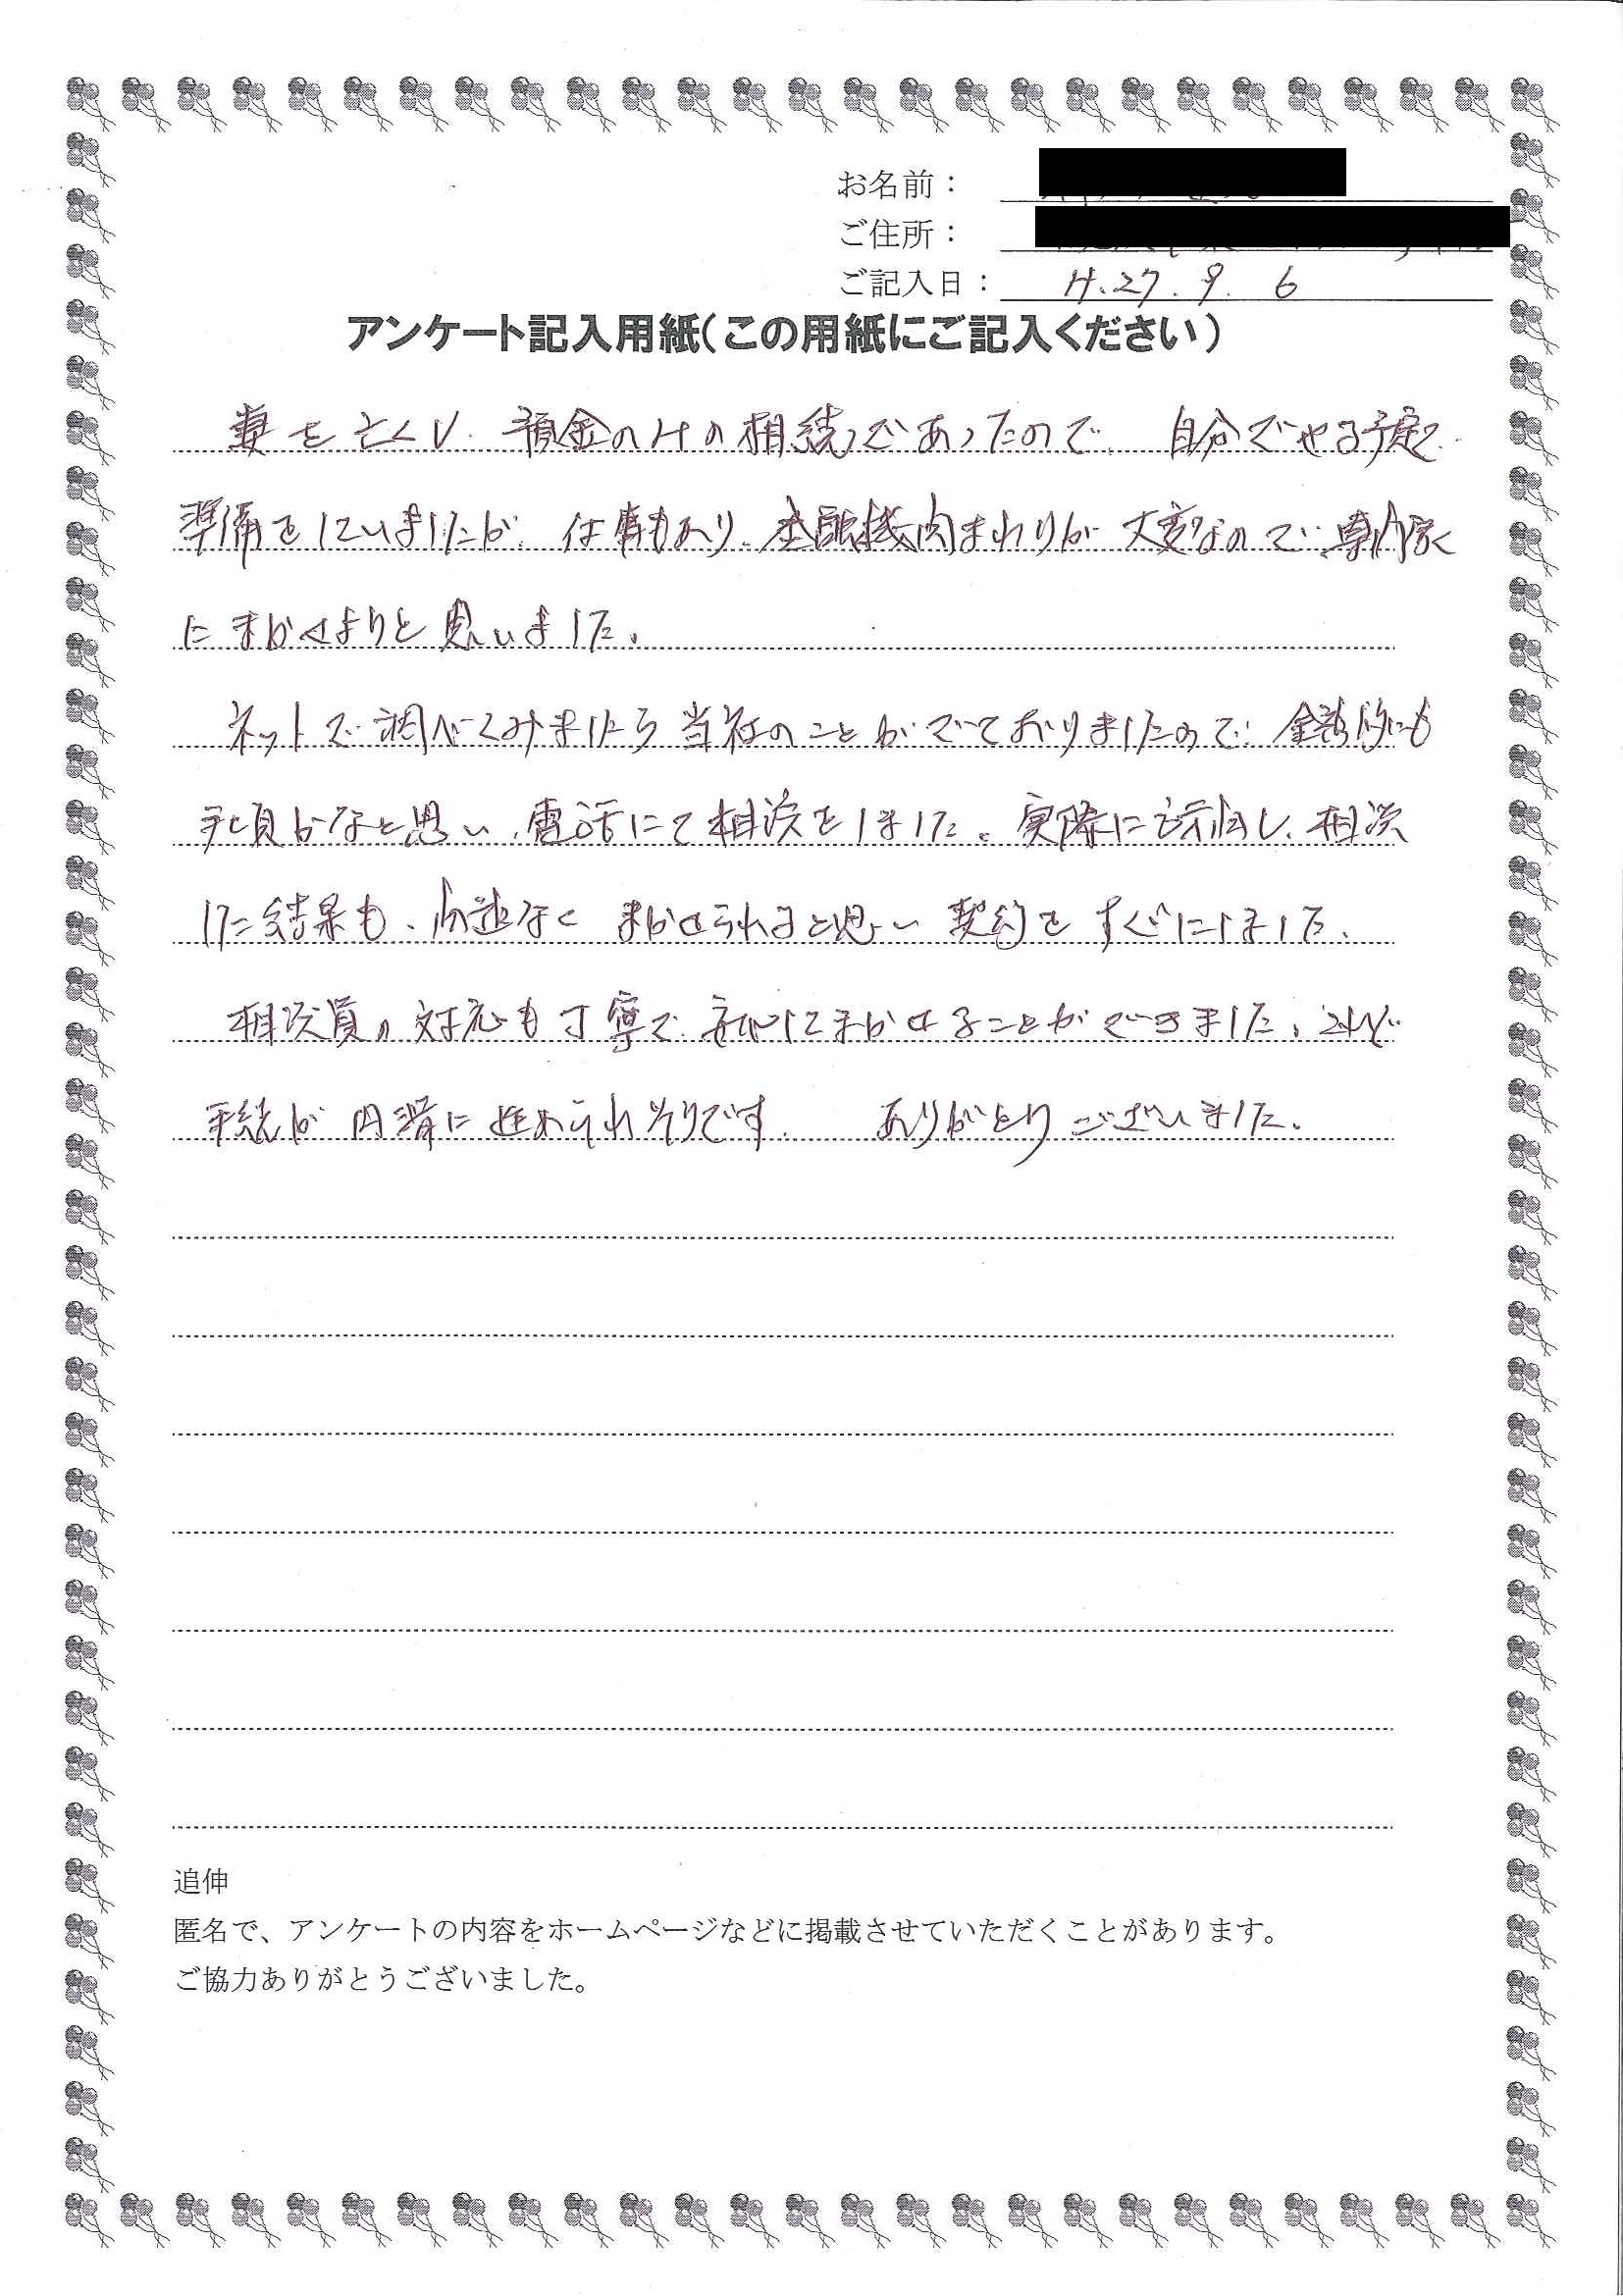 お名前：
ご住所：
ご記入日： H.27.9.6
アンケート記入用紙（この用紙にご記入ください）
妻を亡くし、預金のみの相続であったので、自分でやる予定で
準備をしていましたが、仕事もあり、金融機関まわりが大変なので、専門家
にまかせようと思いました。
ネットで調べてみましたら当社のことがでておりましたので、金額的にも
手頃かなと思い、電話にて相談をしました。実際に訪問し、相談
した結果も、問題なくまかせられると思い契約をすぐにしました。
相談員の対応も丁寧で、安心してまかせることができました。これで
手続が円滑に進められそうです。 ありがとうございました。
追伸
匿名で、アンケートの内容をホームページなどに掲載させていただくことがあります。
ご協力ありがとうございました。